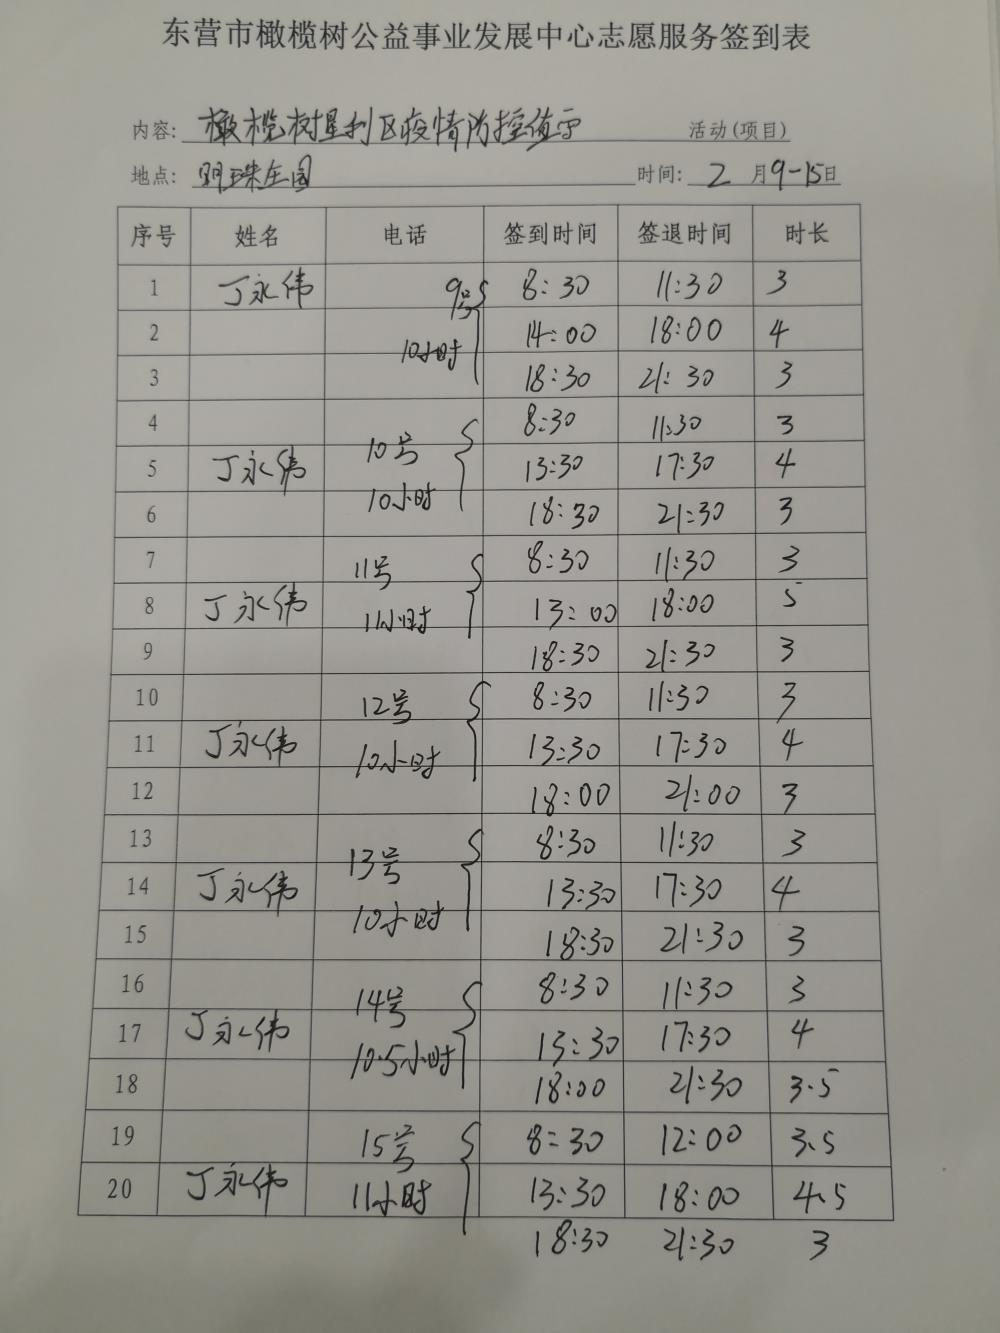 东营市橄榄树公益事业发展中心志愿服务签到表
内容: 橄榄树垦利区疫情防控值守 活动(项目)
地点: 明珠左园 时间: 2 月9-15日
序号 姓名 电话 签到时间 签退时间 时长
1 丁永伟 9号 8:30 11:30 3
2 10小时 14:00 18:00 4
3 18:30 21:30 3
4 10号 8:30 11:30 3
5 丁永伟 13:30 17:30 4
6 10小时 18:30 21:30 3
7 11号 8:30 11:30 3
8 丁永伟 11小时 13:00 18:00 5
9 18:30 21:30 3
10 12号 8:30 11:30 3
11 丁永伟 10小时 13:30 17:30 4
12 18:00 21:00 3
13 13号 8:30 11:30 3
14 丁永伟 10小时 13:30 17:30 4
15 18:30 21:30 3
16 14号 8:30 11:30 3
17 丁永伟 10.5小时 13:30 17:30 4
18 18:00 21:30 3.5
19 15号 8:30 12:00 3.5
20 丁永伟 11小时 13:30 18:00 4.5
18:30 21:30 3